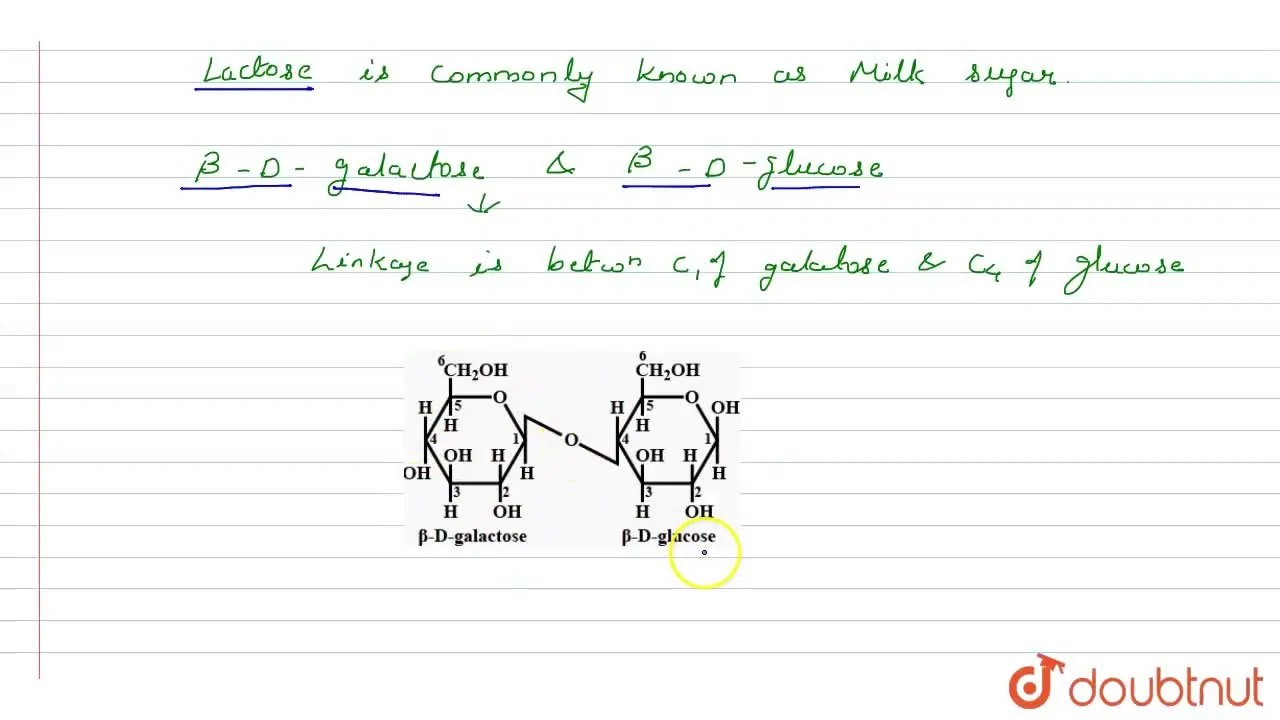 Lactose is commonly known as Milk sugar.
β-D-galactose & β-D-glucose
↓
Linkage is betwn C₁ of galatose & C₄ of glucose
6 6
CH₂OH CH₂OH
O O
H 5 H 5 OH
H H
4 1 O 4 1
OH H OH H
OH H H
3 2 3 2
H OH H OH
β-D-galactose β-D-glucose
doubtnut